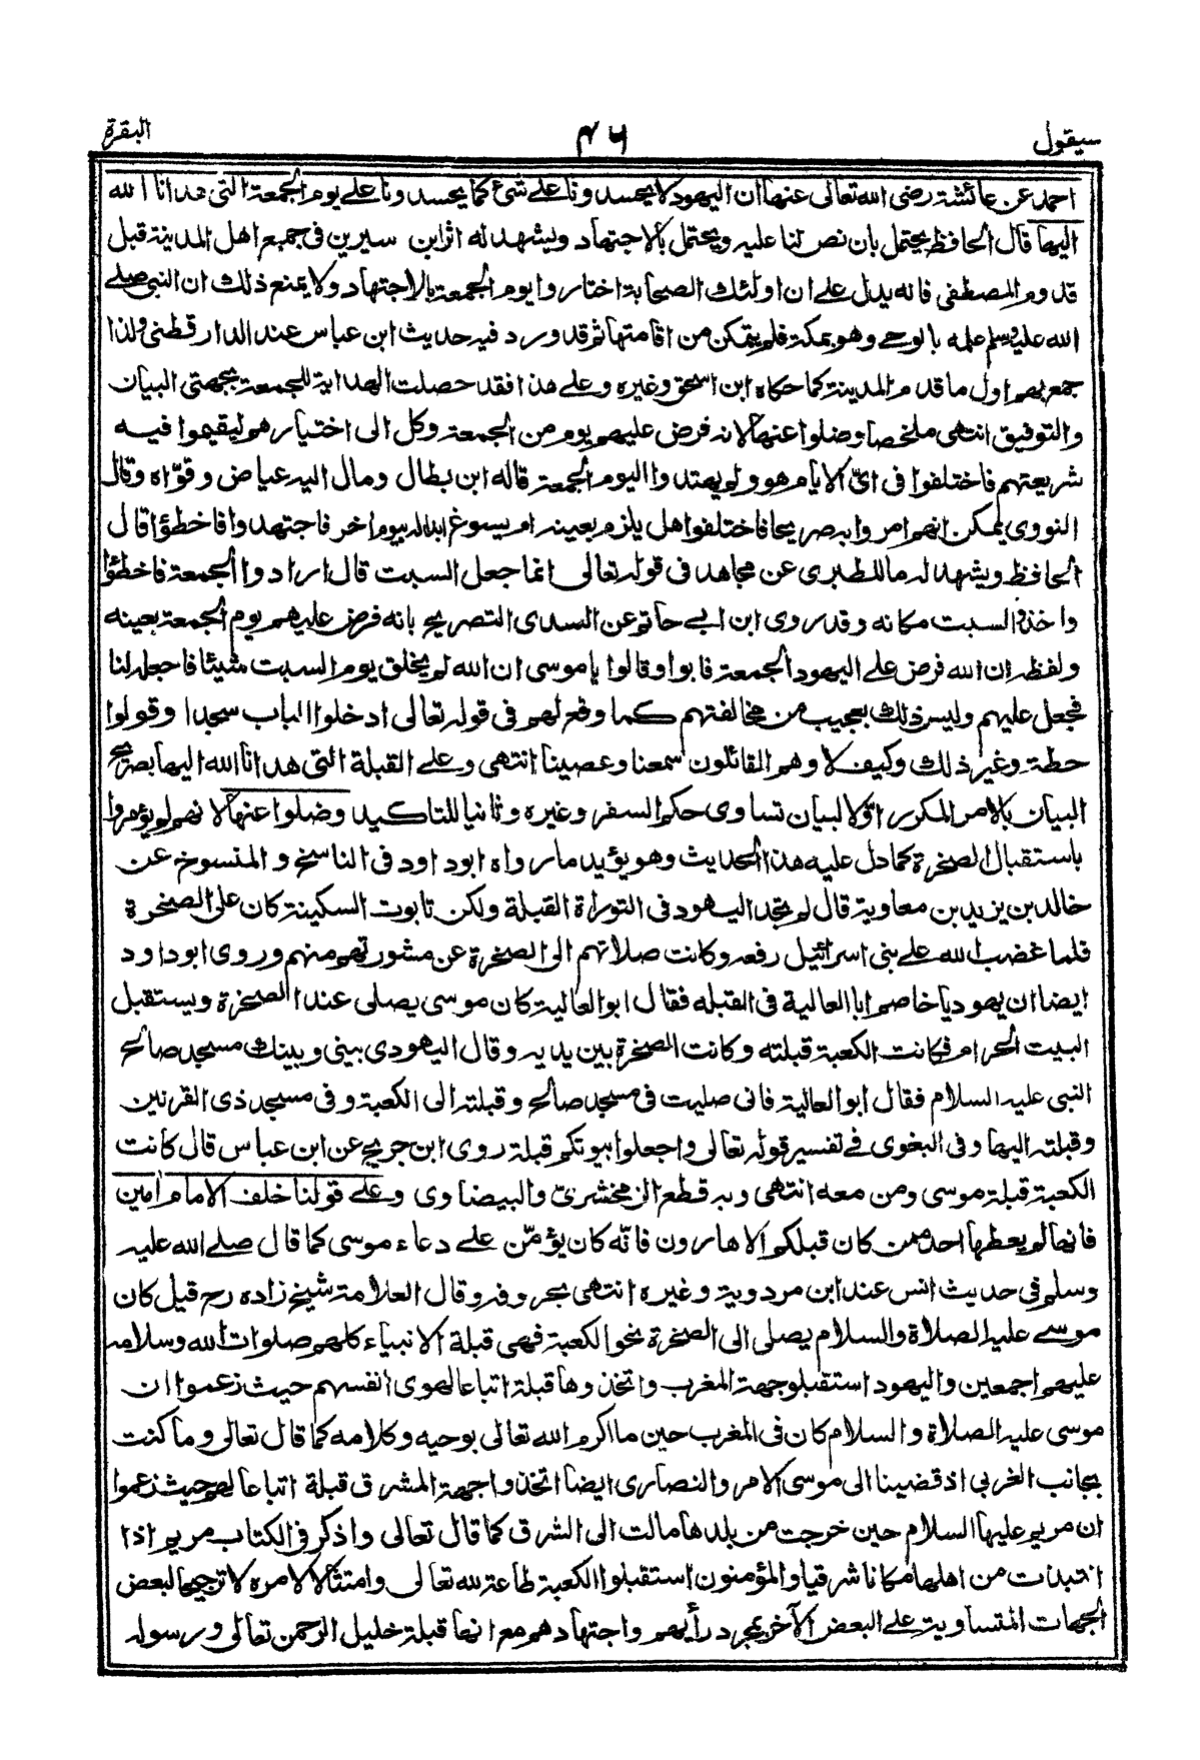 سيقول
٤٦
البقرة
احمد عن عائشة رضى الله تعالى عنها ان اليهود لا يحسدونا على شئ كما يحسدونا على يوم الجمعة التى هدانا الله
اليها قال الحافظ يحتمل بان نص لنا عليه ويحتمل بالاجتهاد ويشهد له اثر ابن سيرين فى جمع اهل المدينة قبل
قدوم المصطفى فانه يدل على ان اولئك الصحابة اختاروا يوم الجمعة بالاجتهاد ولا يمنع ذلك ان النبى صلے
الله عليه وسلم علمه بالوحے وهو بمكة فلم يتمكن من اقامتها ثم قد ورد فيه حديث ابن عباس عند الدارقطنى ولذا
جمع بهم اول ما قدم المدينة كما حكاه ابن اسحق وغيره وعلے هذا فقد حصلت الهداية للجمعة بجهتى البيان
والتوفيق انتهى ملخصا وضلوا عنها لانه فرض عليهم يوم من الجمعة وكل الى اختيارهم ليقيموا فيه
شريعتهم فاختلفوا فى اىّ الايام هو ولم يهتدوا اليوم الجمعة قاله ابن بطال ومال اليه عياض وقوّاه وقال
النووى يمكن انهم امروا به صريحا فاختلفوا هل يلزم بعينه ام يسوغ ابداله بيوم اخر فاجتهدوا فاخطؤا قال
الحافظ ويشهد له ما للطبرى عن مجاهد فى قوله تعالى انما جعل السبت قال ارادوا الجمعة فاخطؤا
واخذوا السبت مكانه وقد روى ابن ابے حاتم عن السدى التصريح بانه فرض عليهم يوم الجمعة بعينه
ولفظه ان الله فرض على اليهود الجمعة فابوا وقالوا يا موسى ان الله لم يخلق يوم السبت شيئا فاجعله لنا
فجعل عليهم وليس ذلك بعجيب من مخالفتهم كما وقع لهم فى قوله تعالى ادخلوا الباب سجدا وقولوا
حطة وغير ذلك وكيف لا وهم القائلون سمعنا وعصينا انتهى وعلے القبلة التى هدانا الله اليها بصريح
البيان بالامر المكرر اوّلا لبيان تساوى حكم السفر وغيره وثانيا للتاكيد وضلوا عنها لانهم لم يؤمروا
باستقبال الصخرة كما دل عليه هذا الحديث وهو يؤيد ما رواه ابو داود فى الناسخ والمنسوخ عن
خالد بن يزيد بن معاوية قال لم تجد اليهود فى التوراة القبلة ولكن تابوت السكينة كان على الصخرة
فلما غضب الله على بنى اسرائيل رفعه وكانت صلاتهم الى الصخرة عن مشورتهم منهم وروى ابو داود
ايضا ان يهوديا خاصم ابا العالية فى القبله فقال ابو العالية كان موسى يصلى عند الصخرة ويستقبل
البيت الحرام فكانت الكعبة قبلته وكانت الصخرة بين يديه وقال اليهودى بينى وبينك مسجد صالح
النبى عليه السلام فقال ابو العالية فانى صليت فى مسجد صالح وقبلته الى الكعبة وفى مسجد ذى القرنين
وقبلته اليها وفى البغوى فے تفسير قوله تعالى واجعلوا بيوتكم قبلة روى ابن جريج عن ابن عباس قال كانت
الكعبة قبلة موسى ومن معه انتهى وبه قطع الزمخشرىّ والبيضاوى وعلے قولنا خلف الامام امين
فانها لم يعطها احد ممن كان قبلكم الا هارون فانّه كان يؤمّن علے دعاء موسى كما قال صلے الله عليه
وسلم فى حديث انس عند ابن مردوية وغيره انتهى بحروفه وقال العلامة شيخ زاده رح قيل كان
موسے عليه الصلاة والسلام يصلى الى الصخرة نحو الكعبة فهى قبلة الانبياء كلهم صلوات الله وسلامه
عليهم اجمعين واليهود استقبلو جهة المغرب واتخذوها قبلة اتباعا لهوى انفسهم حيث زعموا ان
موسى عليه الصلاة والسلام كان فى المغرب حين ما اكرم الله تعالى بوحيه وكلامه كما قال تعالى وما كنت
بجانب الغربى اذ قضينا الى موسى الامر والنصارى ايضا اتخذوا جهة المشرق قبلة اتباعا لهم حيث زعموا
ان مريم عليها السلام حين خرجت من بلدها مالت الى الشرق كما قال تعالى واذكر فى الكتاب مريم اذ
انتبذت من اهلها مكانا شرقيا والمؤمنون استقبلوا الكعبة طاعة لله تعالى وامتثالا لامره لا ترجيحا لبعض
الجهات المتساوية على البعض الآخر بمجرد رأيهم واجتهادهم مع انها قبلة خليل الرحمن تعالى ورسوله